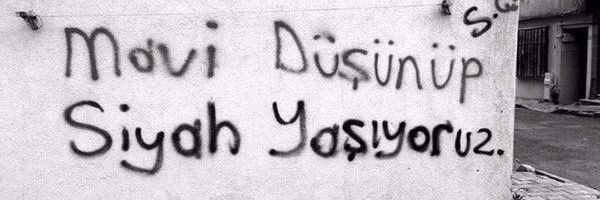 Mavi Düşünüp
Siyah Yaşıyoruz.